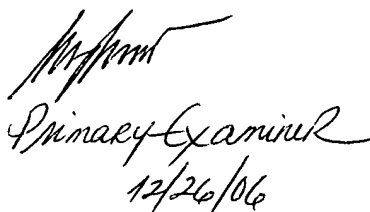 Primary Examiner
12/26/06